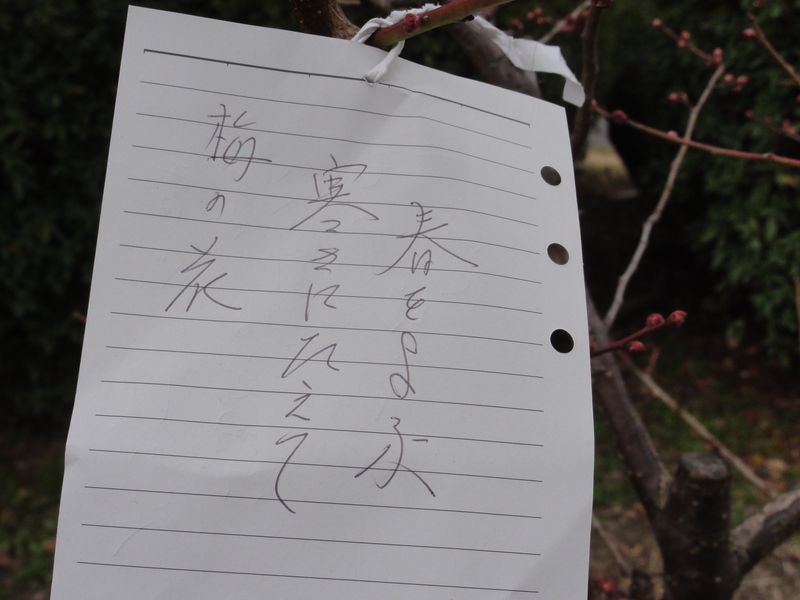 春をよぶ
寒さにたえて
梅の花